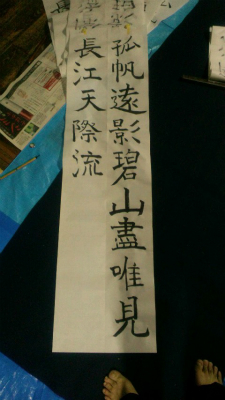 孤帆遠影碧山盡唯見
長江天際流